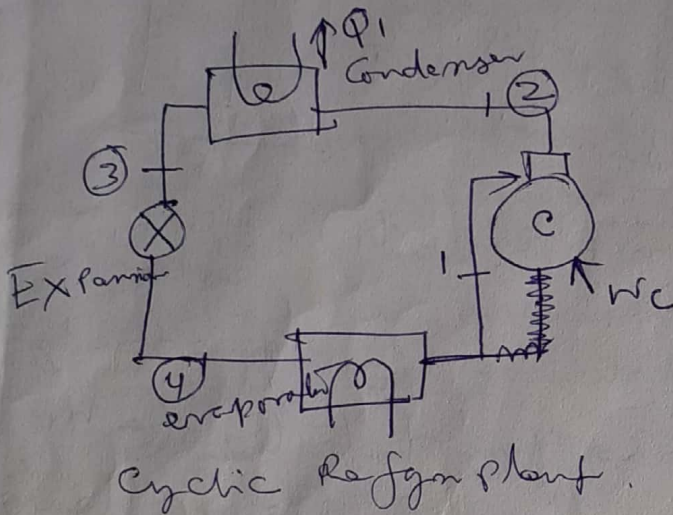 Q1
Condenser
2
3
C
1
Expansion
Wc
4
evaporator
Cyclic Refgn plant.